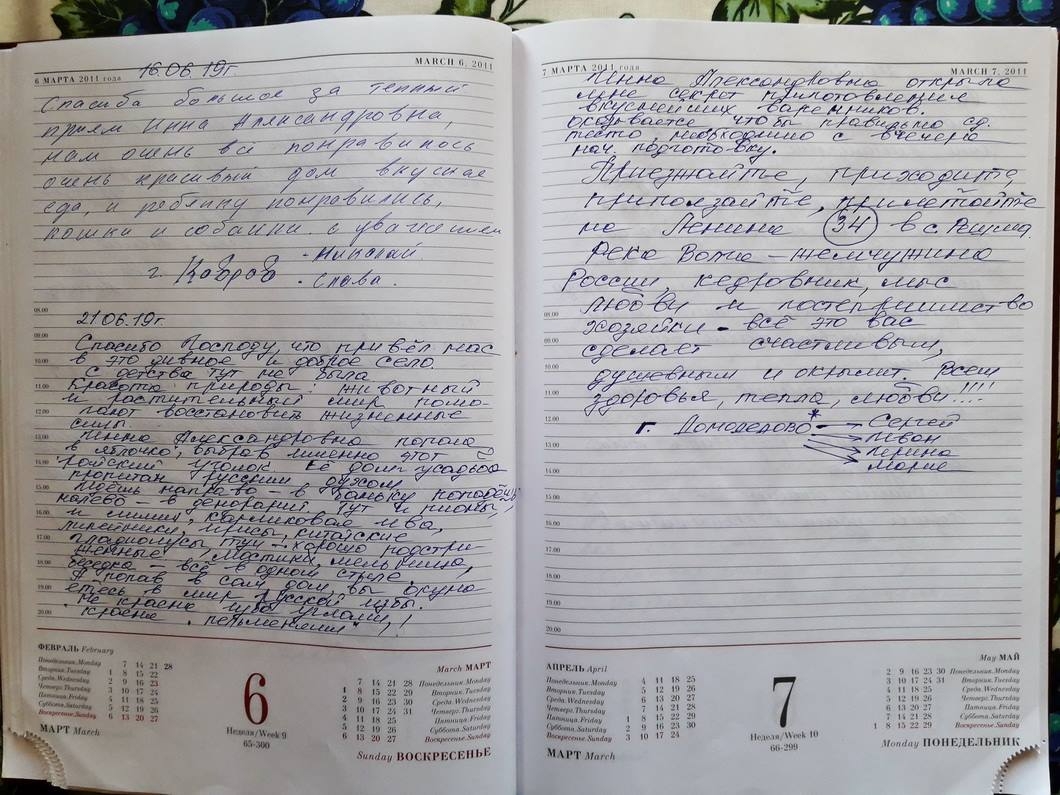 6 МАРТА 2011 года
MARCH 6, 2011
16.06.19г.
Спасиба большое за теплый
прием Инна Александровна,
нам очень всё понравилось
очень красивый дом вкусная
еда, и ребёнку понравились,
кошки и собачки. с уважением
- Николай.
г. Ковров - Слава.
21.06.19г.
Спасибо Господу, что привёл нас
в это дивное и доброе село.
С детства тут не была
Красота природы: животный
и растительный мир помо-
гают восстановить жизненные
силы.
Инна Александровна попала
в яблочко, выбрав именно этот
райский уголок. Её дом усадьба
пропитан русским духом
Идёшь направо – в баньку попадёшь,
налево – в денорарий. Тут и пионы,
и синии, карликовая ива,
лилейники, ирисы, китайские
гладиолусы, туи – хорошо подстри
женные, мостики, мельница,
беседка – всё в одном стиле.
А попав в сам дом, вы окуна
етесь в мир русской избы.
"Не красна изба углами,
красна пельменями"!
08.00
09.00
10.00
11.00
12.00
13.00
14.00
15.00
16.00
17.00
18.00
19.00
20.00
ФЕВРАЛЬ February
Понедельник.Monday 7 14 21 28
Вторник.Tuesday 1 8 15 22
Среда.Wednesday 2 9 16 23
Четверг.Thursday 3 10 17 24
Пятница.Friday 4 11 18 25
Суббота.Saturday 5 12 19 26
Воскресенье.Sunday 6 13 20 27
МАРТ March
6
Неделя/Week 9
65-300
March МАРТ
7 14 21 28 Понедельник.Monday
1 8 15 22 29 Вторник.Tuesday
2 9 16 23 30 Среда.Wednesday
3 10 17 24 31 Четверг.Thursday
4 11 18 25 Пятница.Friday
5 12 19 26 Суббота.Saturday
6 13 20 27 Воскресенье.Sunday
Sunday ВОСКРЕСЕНЬЕ
7 МАРТА 2011 года
MARCH 7, 2011
Инна Александровна открыла
мне секрет приготовления
вкуснейших вареников.
Оказывается чтобы правильно сд.
тесто, необходимо с вечера
нач. подготовку.
Приезжайте, приходите,
приползайте, прилетайте
на Ленина 34 в с. Решма.
Река Волга – жемчужина
России, кедровник, мыс
любви и гостеприимство
хозяйки – всё это вас
сделает счастливым,
душевным и окрылит. Всем
здоровья, тепла, любви!!!!
г. Домодедово* Сергей
Иван
Ирина
Мария
08.00
09.00
10.00
11.00
12.00
13.00
14.00
15.00
16.00
17.00
18.00
19.00
20.00
АПРЕЛЬ April
Понедельник.Monday 4 11 18 25
Вторник.Tuesday 5 12 19 26
Среда.Wednesday 6 13 20 27
Четверг.Thursday 7 14 21 28
Пятница.Friday 1 8 15 22 29
Суббота.Saturday 2 9 16 23 30
Воскресенье.Sunday 3 10 17 24
МАРТ March
7
Неделя/Week 10
66-299
May МАЙ
2 9 16 23 30 Понедельник.Monday
3 10 17 24 31 Вторник.Tuesday
4 11 18 25 Среда.Wednesday
5 12 19 26 Четверг.Thursday
6 13 20 27 Пятница.Friday
7 14 21 28 Суббота.Saturday
1 8 15 22 29 Воскресенье.Sunday
Monday ПОНЕДЕЛЬНИК